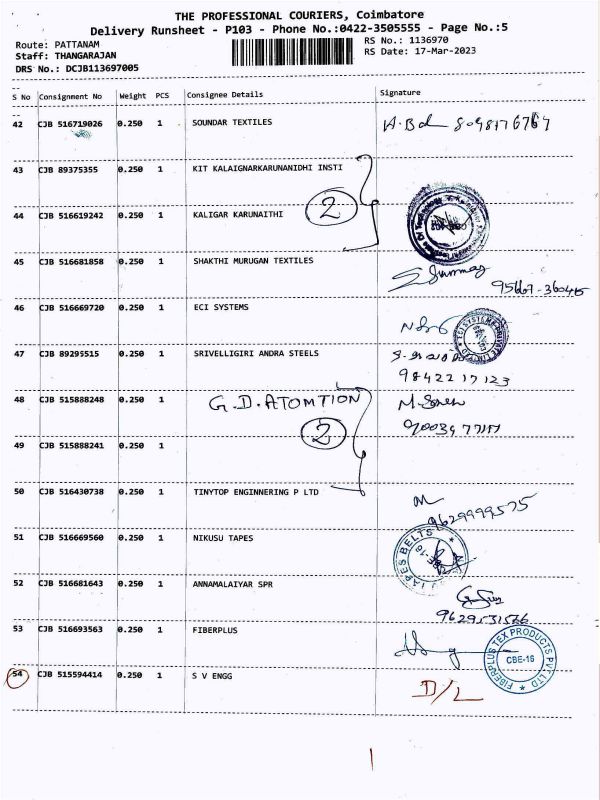 THE PROFESSIONAL COURIERS, Coimbatore
Delivery Runsheet - P103 - Phone No.:0422-3505555 - Page No.:5
Route: PATTANAM
RS No.: 1136970
Staff: THANGARAJAN
RS Date: 17-Mar-2023
DRS No.: DCJB113697005
S No Consignment No Weight PCS Consignee Details Signature
42 CJB 516719026 0.250 1 SOUNDAR TEXTILES
43 CJB 89375355 0.250 1 KIT KALAIGNARKARUNANIDHI INSTI
2
44 CJB 516619242 0.250 1 KALIGAR KARUNAITHI
45 CJB 516681858 0.250 1 SHAKTHI MURUGAN TEXTILES
46 CJB 516669720 0.250 1 ECI SYSTEMS
47 CJB 89295515 0.250 1 SRIVELLIGIRI ANDRA STEELS
98422 17123
48 CJB 515888248 0.250 1 G.D.ATOMTION
2
49 CJB 515888241 0.250 1
50 CJB 516430738 0.250 1 TINYTOP ENGINNERING P LTD
9629999575
51 CJB 516669560 0.250 1 NIKUSU TAPES
52 CJB 516681643 0.250 1 ANNAMALAIYAR SPR
9629531526
53 CJB 516693563 0.250 1 FIBERPLUS
FIBERPLUS TEX PRODUCTS PVT LTD
CBE-16
54 CJB 515594414 0.250 1 S V ENGG D/L